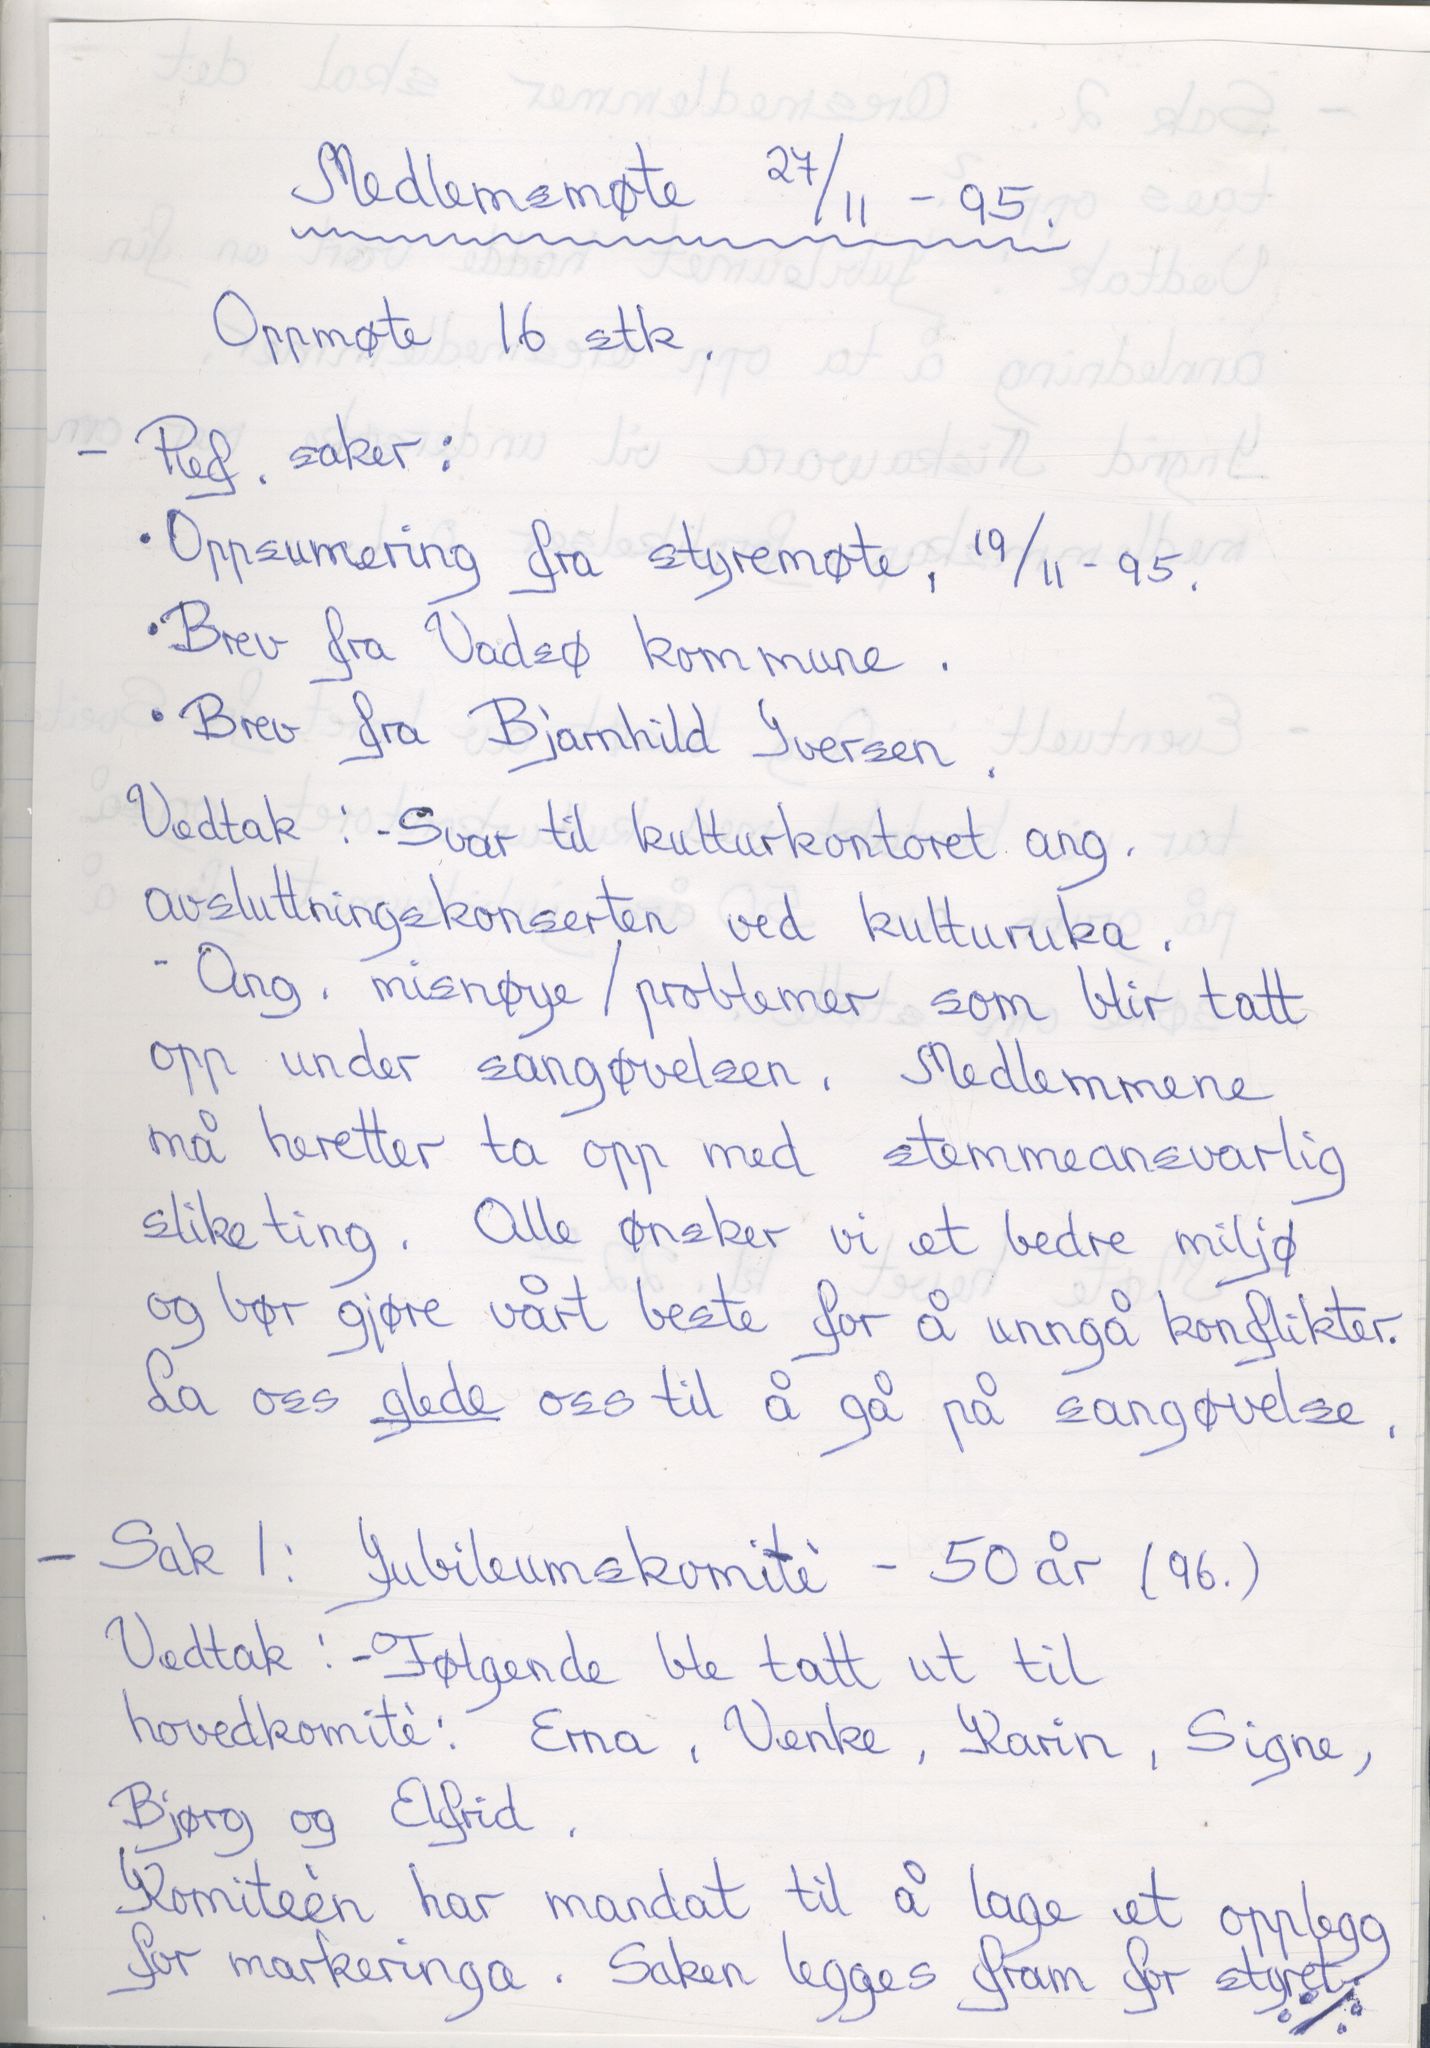 Medlemsmøte 27/11 - 95.
Oppmøte 16 stk.
- Ref. saker:
• Oppsumering fra styremøte, 19/11 - 95.
• Brev fra Vadsø kommune.
• Brev fra Bjarnhild Iversen.
Vedtak: - Svar til kulturkontoret ang.
avsluttningskonserten ved kulturuka.
- Ang. misnøye/problemer som blir tatt
opp under sangøvelsen. Medlemmene
må heretter ta opp med stemmeansvarlig
slike ting. Alle ønsker vi et bedre miljø
og bør gjøre vårt beste for å unngå konflikter.
La oss glede oss til å gå på sangøvelse.
- Sak 1: Jubileumskomitè - 50 år (96.)
Vedtak: - Følgende ble tatt ut til
hovedkomitè: Erna, Venke, Karin, Signe,
Bjørg og Elfrid.
Komiteèn har mandat til å lage et opplegg
for markeringa. Saken legges fram for styret.